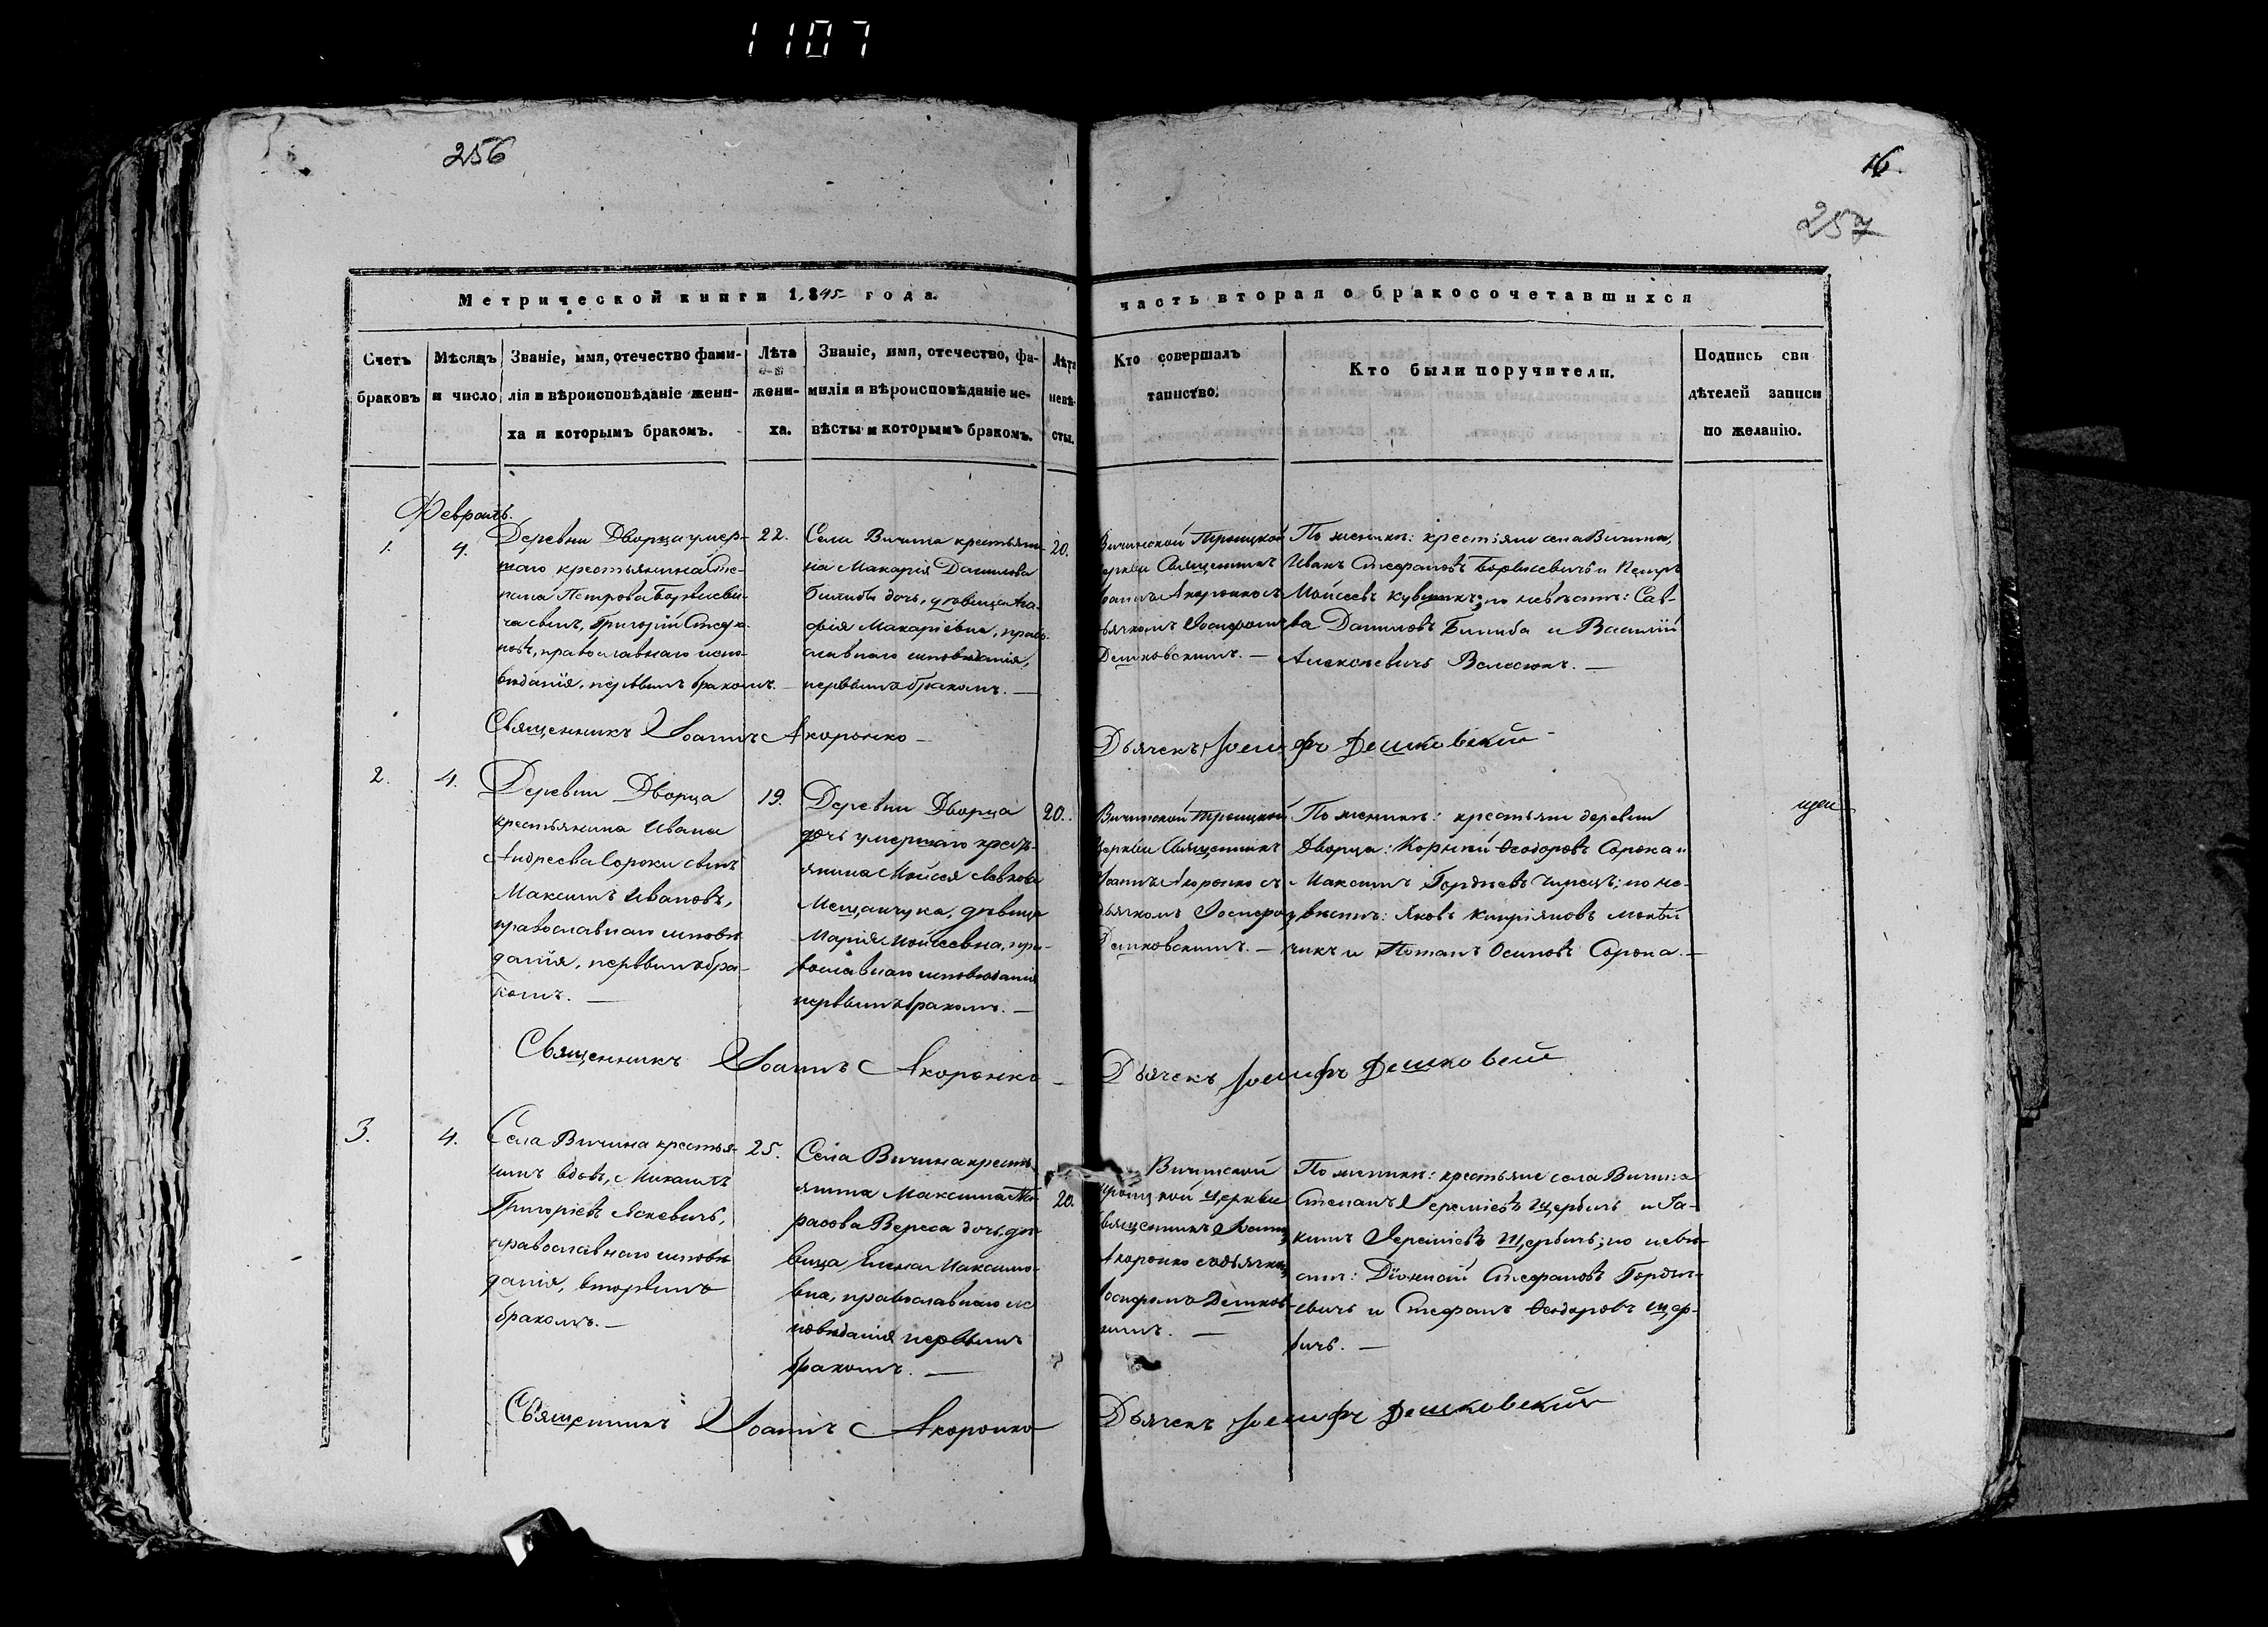 1107
256
16.
257
Метрической книги 1,845 года.
часть вторая о бракосочетавшихся
Счетъ браковъ
Мѣсяцъ и число
Званіе, имя, отечество фами-
лія и вѣроисповѣданіе жени-
ха и которымъ бракомъ.
Лѣта
жени-
ха.
Званіе, имя, отечество, фа-
милія и вѣроисповѣданіе не-
вѣсты и которымъ бракомъ.
Лѣта
невѣ-
сты.
Кто совершалъ
таинство.
Кто были поручители.
Подпись сви
дѣтелей записи
по желанію.
Февраль.
1.
4.
Деревни Дворца умер-
шаго крестьянина Сте-
пана Петрова
сынъ, Григорій Стефа-
новъ, православнаго испо-
вѣданія, первымъ бракомъ. —
22.
Села Вичина крестьяни-
на Макарія Данилова
дочь, дѣвица Ага-
фія Макаріевна, право-
славнаго исповѣданія,
первымъ бракомъ. —
20.
Вичинской Троицкой
церкви Священникъ
Іоаннъ Акоронко съ
дьячкомъ Іосифомъ
Дешковскимъ. —
По женихѣ: крестьяне села Вичина,
Иванъ Стефановъ и Петръ
Мойсеевъ по невѣстѣ: Сав-
ва Даниловъ и Василій
Алексѣевичъ Волосюкъ. —
Священникъ Іоаннъ Акоронко —
Дьячекъ Іосифъ Дешковскій
2.
4.
Деревни Дворца
крестьянина Ивана
Андреева Сороки сынъ
Максимъ Ивановъ,
православнаго исповѣ
данія, первымъ бра-
комъ. —
19.
Деревни Дворца
дочь умершаго кресть-
янина Мойсея Левкова
Мещанчука, дѣвица
Марія Мойсеевна, пра-
вославнаго исповѣданія
первымъ бракомъ. —
20.
Вичинской Троицкой
церкви Священникъ
Іоаннъ Акоронко съ
дьячкомъ Іосифомъ
Дешковскимъ. —
По женихѣ: крестьяне деревни
Дворца: Корнѣй Ѳеодоровъ Сорока и
Максимъ Гордѣевъ по не-
вѣстѣ: Яковъ Кипріяновъ
чикъ и Потапъ Осиповъ Сорока. —
Священникъ Іоаннъ Акоронко —
Дьячекъ Іосифъ Дешковскій
3.
4.
Села Вичина крестья-
нинъ вдовъ, Михаилъ
Григоріевъ Яскевичъ,
православнаго исповѣ
данія, вторымъ
бракомъ. —
25.
Села Вичина кресть
янина Максима Та-
расова Вереса дочь, дѣ-
вица Елена Максимо-
вна, православнаго ис
повѣданія первымъ
бракомъ. —
20.
Вичинской
Троицкой Церкви
Священникъ Іоаннъ
Акоронко съ дьячкомъ
Іосифомъ Дешковс-
кимъ. —
По женихѣ: крестьяне села Вичина
Степанъ Іереміевъ Щербичъ и Іа-
кимъ Іереміевъ Щербичъ; по невѣ-
стѣ: Діонисій Стефановъ Гордѣ-
евичъ и Стефанъ Ѳеодоровъ Щер-
бичъ. —
Священникъ Іоаннъ Акоронко
Дьячекъ Іосифъ Дешковскій